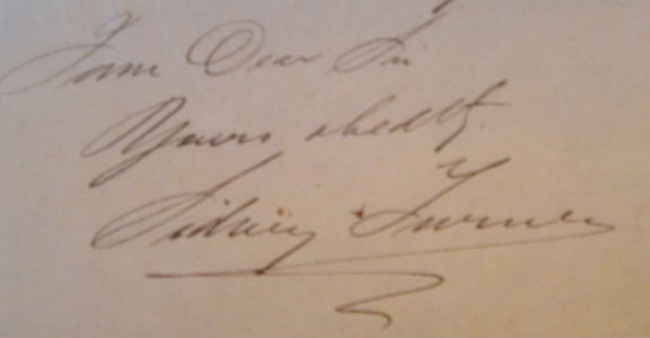 I am Dear Sir
Yours obedtly.
Sidney Turner